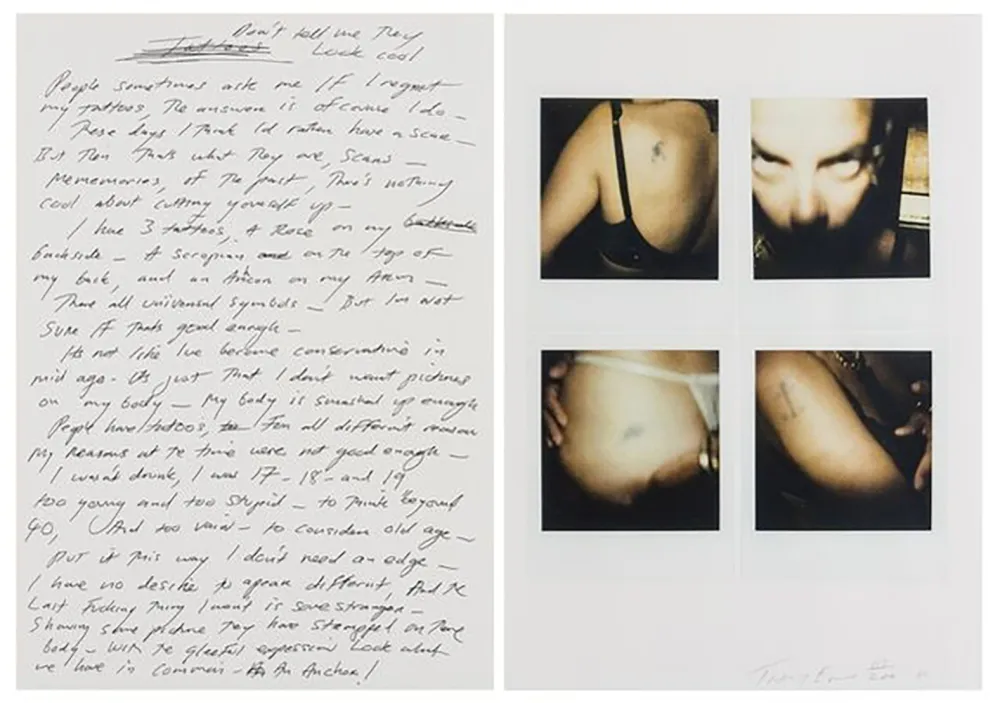 Don't tell me They
Tattoos Look cool
People sometimes ask me If I regret
my tattoos, The answer is of course I do –
These days I Think I'd rather have a scar –
But Then Thats what They are, Scars –
Mememories, of The past, There's nothing
cool about cutting yourself up –
I have 3 tattoos, A Rose on my
backside – A Scorpian and on The top of
my back, and an Ancor on my Arm –
There all universal Symbols – But Im not
Sure If Thats good enough –
Its not like Ive become conservative in
mid age – Its just That I don't want pictures
on my body – My body is smashed up enough
People have tattoo's, for all different reason
My reasons at the time were not good enough –
I wasn't drunk, I was 17 – 18 – and 19
too young and too stupid – to Think beyond
40, And too vain – to consider old age –
PUT it This way I don't need an edge –
I have no desire to apear different, And The
Last Fucking Thing I want is some stranger –
Showing some picture They have Stamped on There
body – With The gleeful expression Look what
we have in common – An Anchor!
Tracey Emin
200